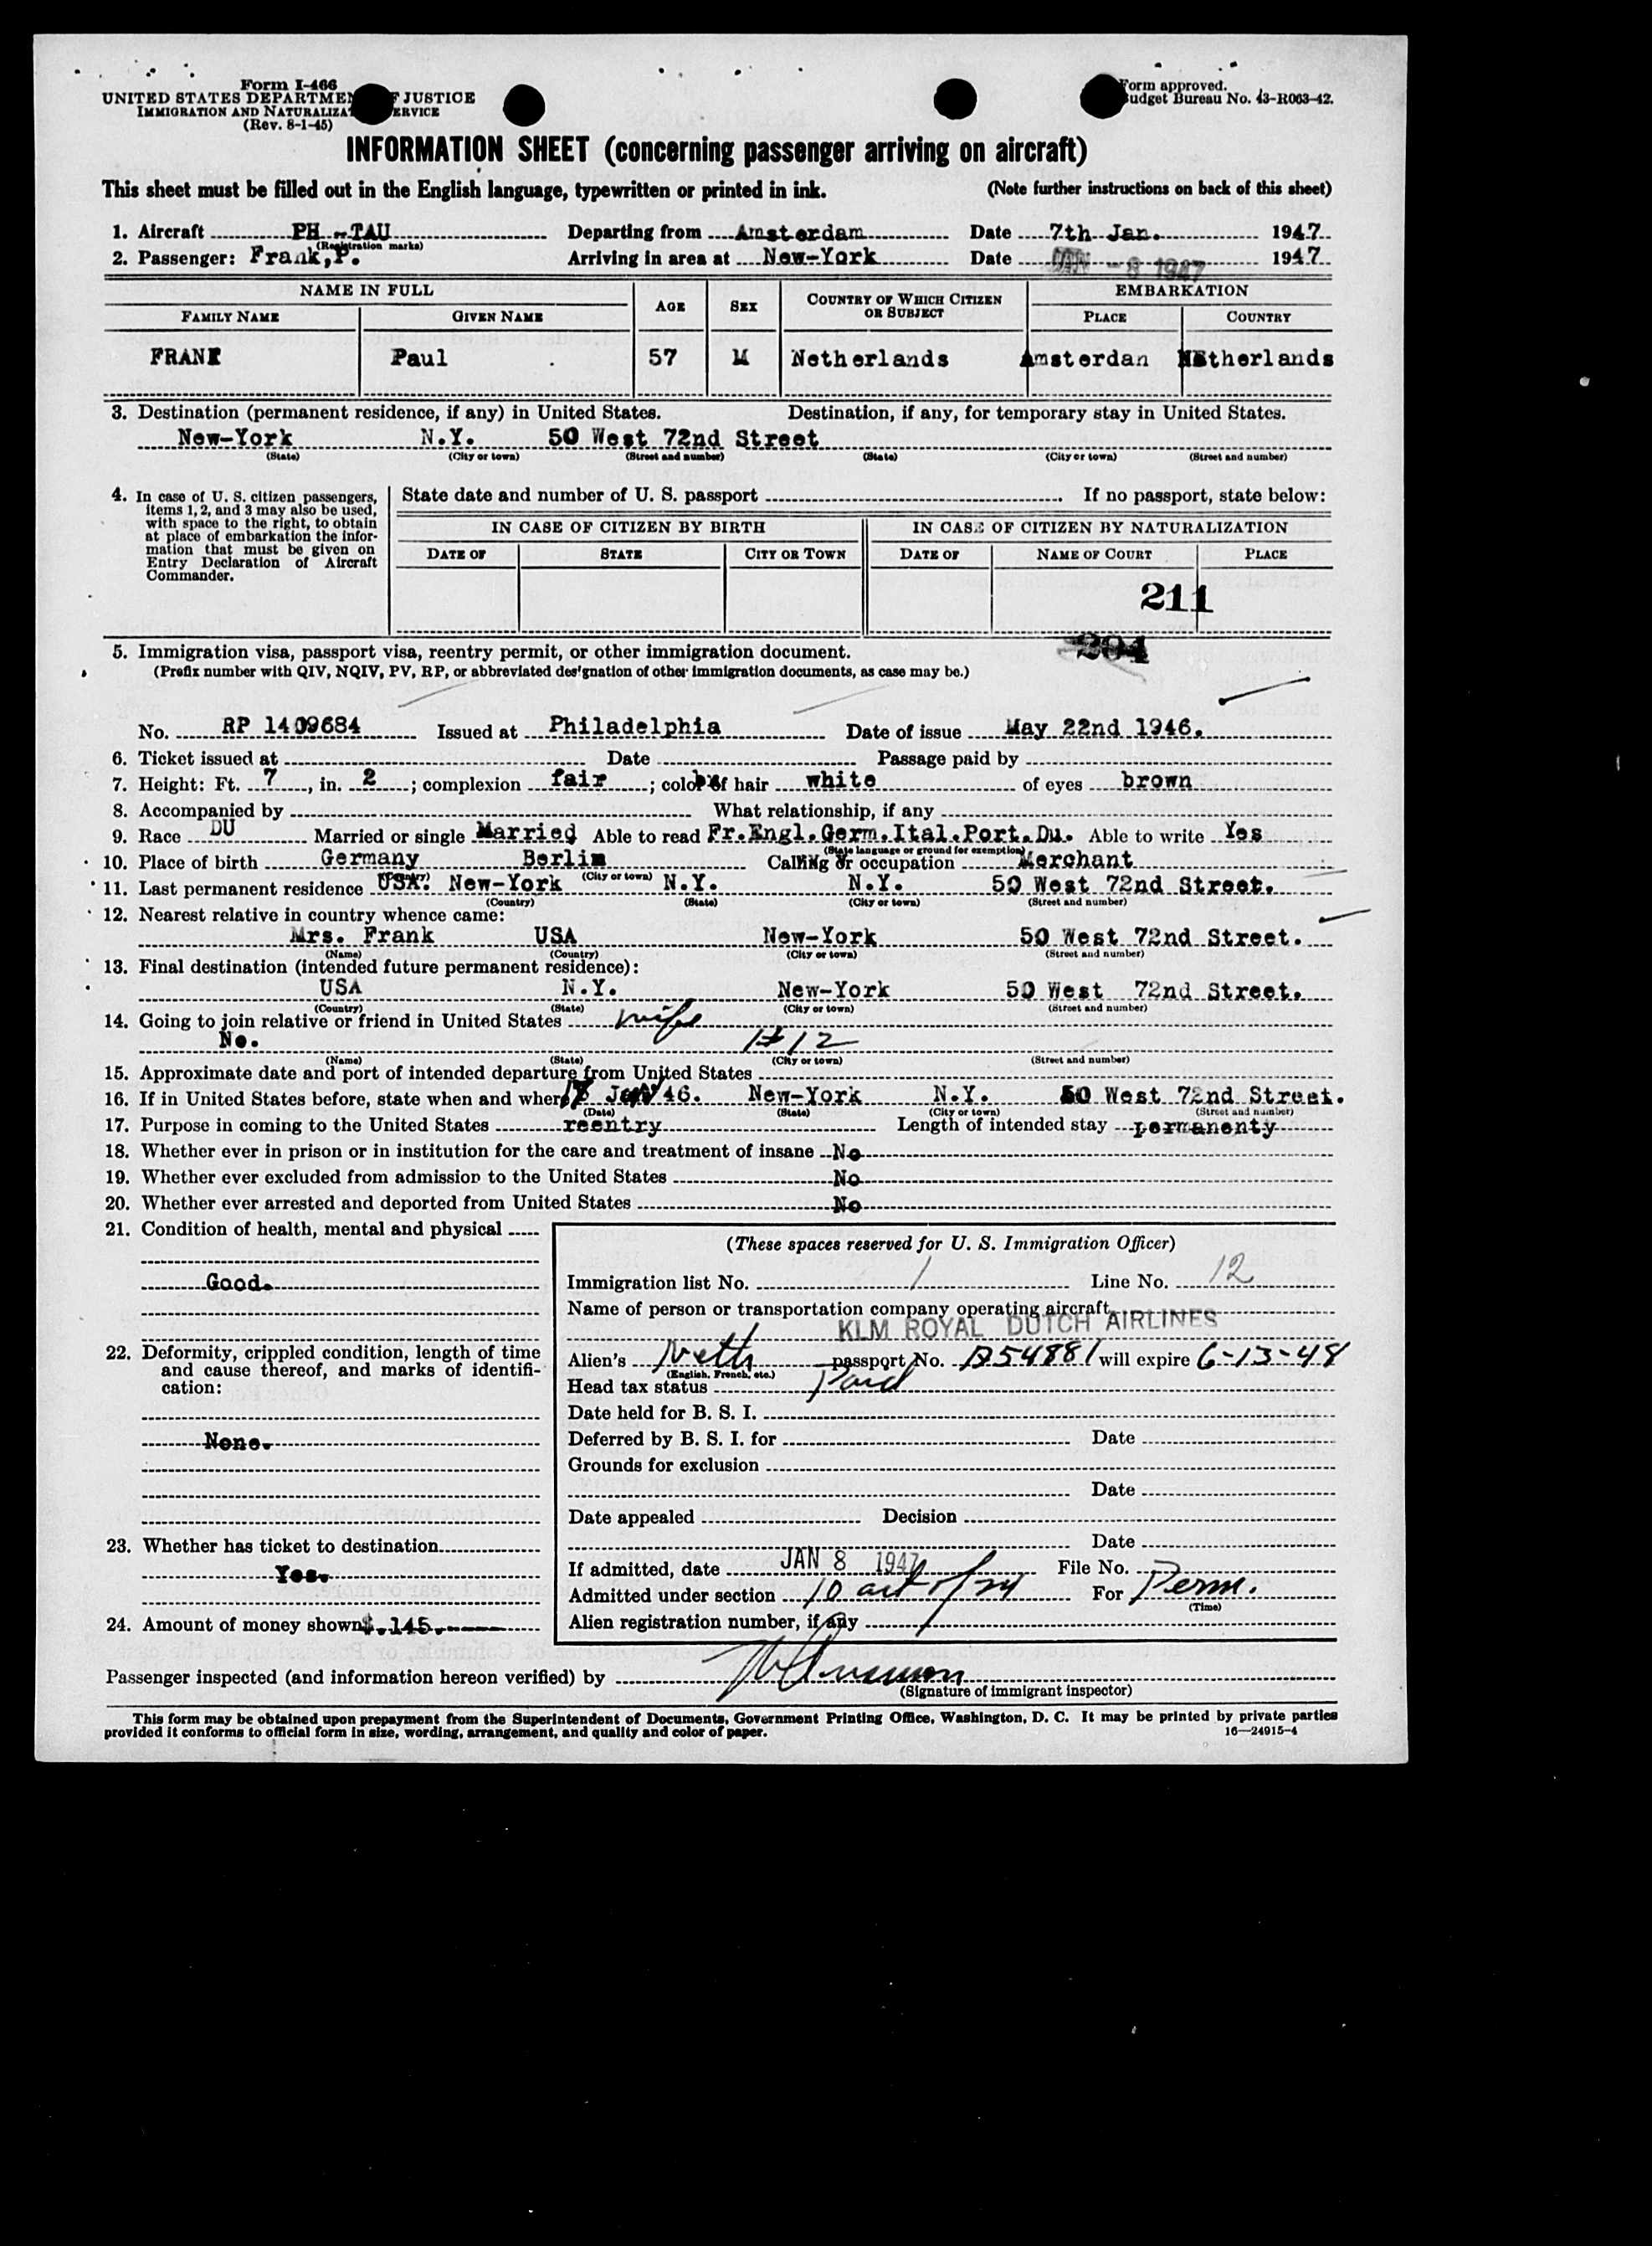 Form I-466
UNITED STATES DEPARTMENT OF JUSTICE
IMMIGRATION AND NATURALIZATION SERVICE
(Rev. 8-1-45)
Form approved.
Budget Bureau No. 43-R063-42.
INFORMATION SHEET (concerning passenger arriving on aircraft)
This sheet must be filled out in the English language, typewritten or printed in ink. (Note further instructions on back of this sheet)
1. Aircraft PH -TAU Departing from Amsterdam Date 7th Jan. 1947
(Registration marks)
2. Passenger: Frank,P. Arriving in area at New-York Date JAN -8 1947 1947
NAME IN FULL AGE SEX COUNTRY OF WHICH CITIZEN OR SUBJECT EMBARKATION
FAMILY NAME GIVEN NAME PLACE COUNTRY
FRANK Paul 57 M Netherlands Amsterdan Netherlands
3. Destination (permanent residence, if any) in United States. Destination, if any, for temporary stay in United States.
New-York N.Y. 50 West 72nd Street
(State) (City or town) (Street and number) (State) (City or town) (Street and number)
4. In case of U. S. citizen passengers, items 1, 2, and 3 may also be used, with space to the right, to obtain at place of embarkation the information that must be given on Entry Declaration of Aircraft Commander.
State date and number of U. S. passport If no passport, state below:
IN CASE OF CITIZEN BY BIRTH IN CASE OF CITIZEN BY NATURALIZATION
DATE OF STATE CITY OR TOWN DATE OF NAME OF COURT PLACE
211
204
5. Immigration visa, passport visa, reentry permit, or other immigration document.
(Prefix number with QIV, NQIV, PV, RP, or abbreviated designation of other immigration documents, as case may be.)
No. RP 1409684 Issued at Philadelphia Date of issue May 22nd 1946.
6. Ticket issued at Date Passage paid by
7. Height: Ft. 7, in. 2; complexion fair; color of hair white of eyes brown
8. Accompanied by What relationship, if any
9. Race DU Married or single Married Able to read Fr.Engl.Germ.Ital.Port.Du. Able to write Yes
(State language or ground for exemption)
10. Place of birth Germany Berlin Calling or occupation Merchant
(Country) (City or town)
11. Last permanent residence USA. New-York N.Y. N.Y. 50 West 72nd Street.
(Country) (State) (City or town) (Street and number)
12. Nearest relative in country whence came:
Mrs. Frank USA New-York 50 West 72nd Street.
(Name) (Country) (City or town) (Street and number)
13. Final destination (intended future permanent residence):
USA N.Y. New-York 50 West 72nd Street.
(Country) (State) (City or town) (Street and number)
14. Going to join relative or friend in United States wife
No. 12
(Name) (State) (City or town) (Street and number)
15. Approximate date and port of intended departure from United States
16. If in United States before, state when and where 46. New-York N.Y. 50 West 72nd Street.
(Date) (State) (City or town) (Street and number)
17. Purpose in coming to the United States reentry Length of intended stay permanenty
18. Whether ever in prison or in institution for the care and treatment of insane No
19. Whether ever excluded from admission to the United States No
20. Whether ever arrested and deported from United States No
21. Condition of health, mental and physical
Good.
22. Deformity, crippled condition, length of time and cause thereof, and marks of identification:
None.
23. Whether has ticket to destination
Yes.
24. Amount of money shown $.145.
(These spaces reserved for U. S. Immigration Officer)
Immigration list No. 1 Line No. 12
Name of person or transportation company operating aircraft
KLM ROYAL DUTCH AIRLINES
Alien's Neth passport No. B54881 will expire 6-13-48
(English, French, etc.)
Head tax status Paid
Date held for B. S. I.
Deferred by B. S. I. for Date
Grounds for exclusion
Date
Date appealed Decision
Date
If admitted, date JAN 8 1947 File No.
Admitted under section 10 act of 24 For Perm.
(Time)
Alien registration number, if any
Passenger inspected (and information hereon verified) by
(Signature of immigrant inspector)
This form may be obtained upon prepayment from the Superintendent of Documents, Government Printing Office, Washington, D. C. It may be printed by private parties
provided it conforms to official form in size, wording, arrangement, and quality and color of paper. 16—24915-4